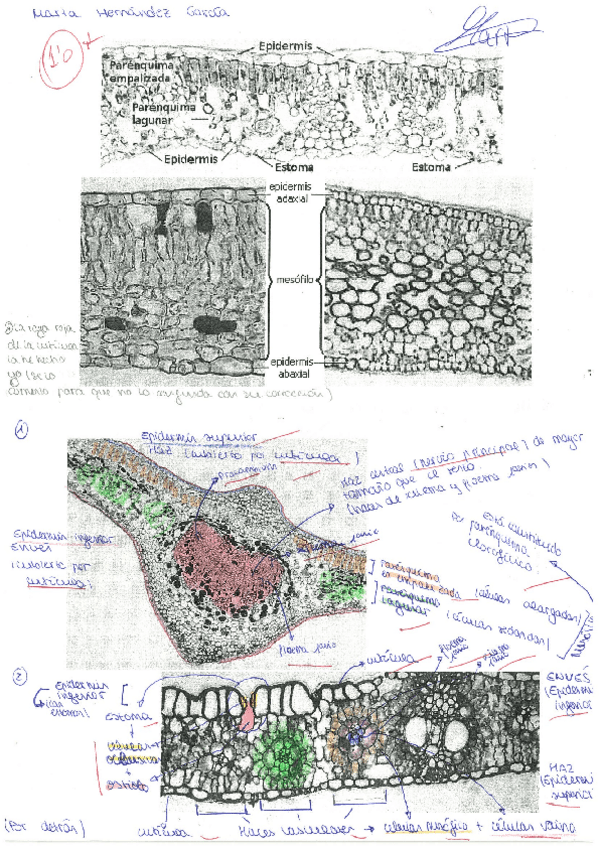 Marta Hernández García
1'0 +
Epidermis
Parénquima empalizada
Parénquima lagunar
Epidermis
Estoma
Estoma
epidermis adaxial
mesófilo
epidermis abaxial
(La raya roja
de la cutícula
la he hecho
yo
comento para que no lo confunda con su corrección)
1
Epidermis superior
HAZ (cubierto por cutícula)
protoxilema
Haz central (nervio principal) de mayor
tamaño que el resto
(haces de xilema y floema juntos)
Está constituido
de parénquima
clorofílico
Epidermis inferior
ENVÉS
(cubierto por
cutícula)
parénquima
en empalizada
(células alargadas)
parénquima
lagunar
(células redondas)
Mesófilo
floema
2
Epidermis
inferior
estoma
células
oclusivas
ostiolo
cutícula
ENVÉS
(Epidermis
inferior)
HAZ
(Epidermis
superior)
(Por detrás)
cutícula
Haces vasculares → células mesófilo + células vaina